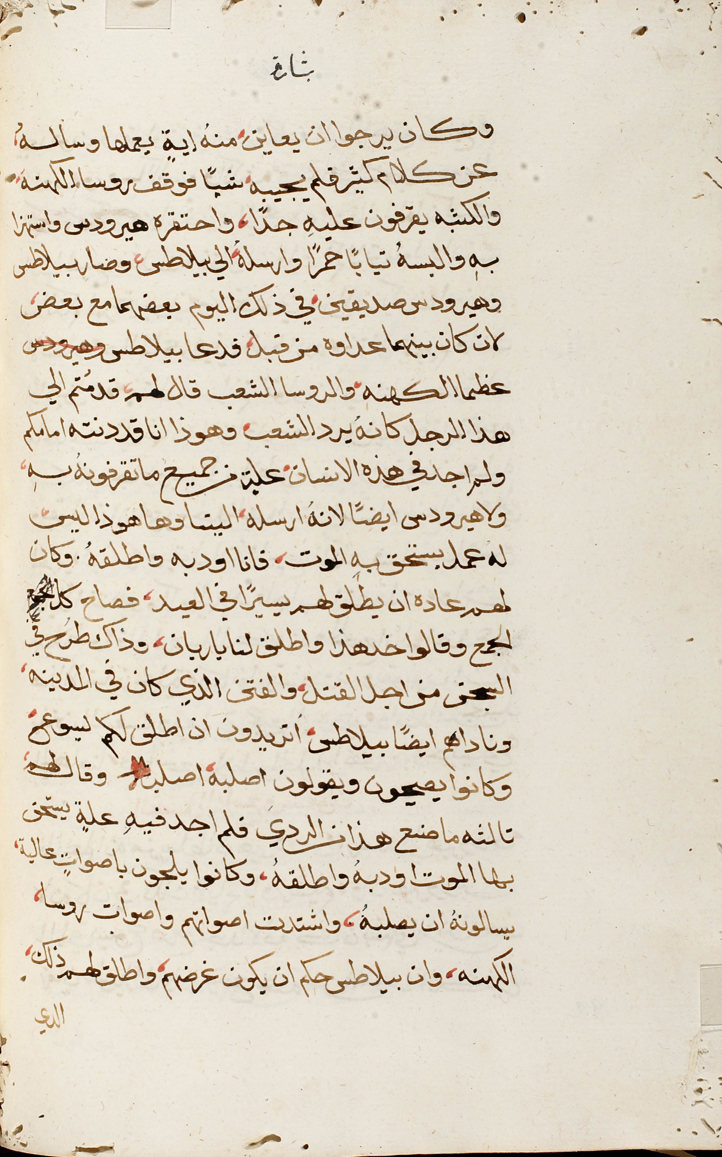 بشارة
وكان يرجوا ان يعاين منه اية يعملها وساله
عن كلام كثير فلم يجيبه شيا فوقف روسا الكهنة
والكتبه يقرفون عليه جدا واحتقره هيرودس واستهزا
به والبسه تيابا حمرا وارسله الي بيلاطس وصار بيلاطس
وهيرودس صديقين في ذلك اليوم بعضهما مع بعض
لان كان بينهما عداوه من قبل فدعا بيلاطس وهيرودس
عظما الكهنه والروسا الشعب قال لهم قدمتم الي
هذا الرجل كانه يرد الشعب وهوذا انا قد دنته امامكم
ولم اجد في هذه الانسان علة من جميع ما تقرفونه به
ولا هيرودس ايضا لانه ارسله الينا وها هوذا ليس
له عمل يستحق به الموت فانا اودبه واطلقه وكان
لهم عاده ان يطلق لهم يسيرا في العيد فصاح كل
الجمع وقالوا خد هذا واطلق لنا باربان وذاك طرح في
السجن من اجل القتل والفتن الذي كان في المدينه
وناداهم ايضا بيلاطس اتريدون ان اطلق لكم يسوع
وكانوا يصيحون ويقولون اصلبه اصلبه وقال لهم
تالته ما صنع هذا من الردي فلم اجد فيه علة يستحق
بها الموت اودبه واطلقه وكانوا يلجون باصوات عالية
يسالونه ان يصلبه واشتدت اصواتهم واصوات روسا
الكهنه وان بيلاطس حكم ان يكون غرضهم واطلق لهم ذلك
الدي